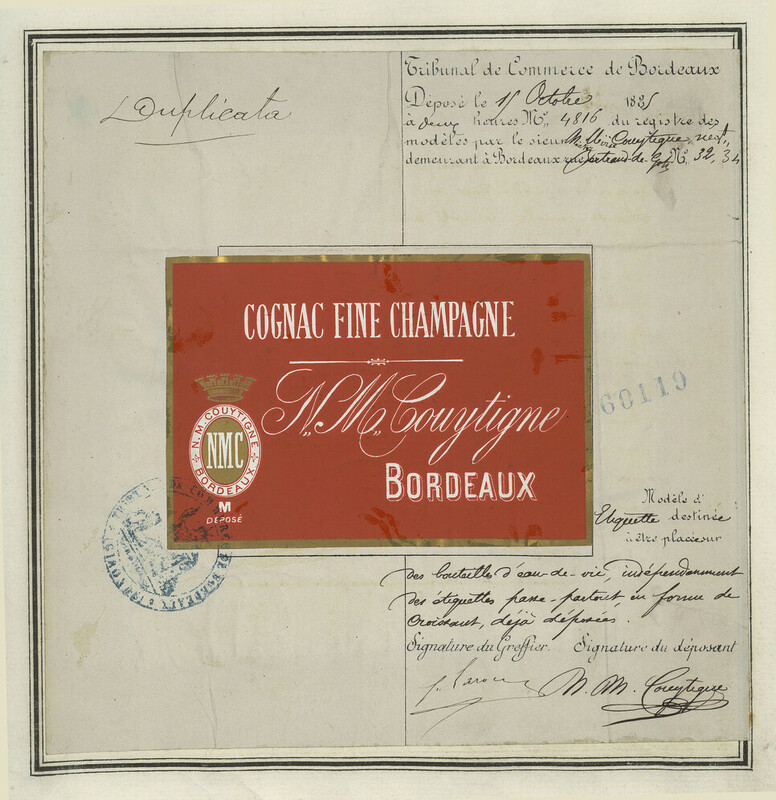 Duplicata
Tribunal de Commerce de Bordeaux
Déposé le 15 Octobre 1885
à deux heures No. 4816 du registre des
modèles par le sieur Couytigne négt.
demeurant à Bordeaux rue No. 32, 34
COGNAC FINE CHAMPAGNE
N. M. Couytigne
BORDEAUX
N. M. COUYTIGNE
NMC
BORDEAUX
M
DÉPOSÉ
60119
Modèle d'
Etiquette destinée
à être placée sur
des bouteilles d'eau-de-vie, indépendamment
des étiquettes passe-partout, en forme de
Croissant, déjà déposées.
Signature du Greffier. Signature du déposant
N. M. Couytigne